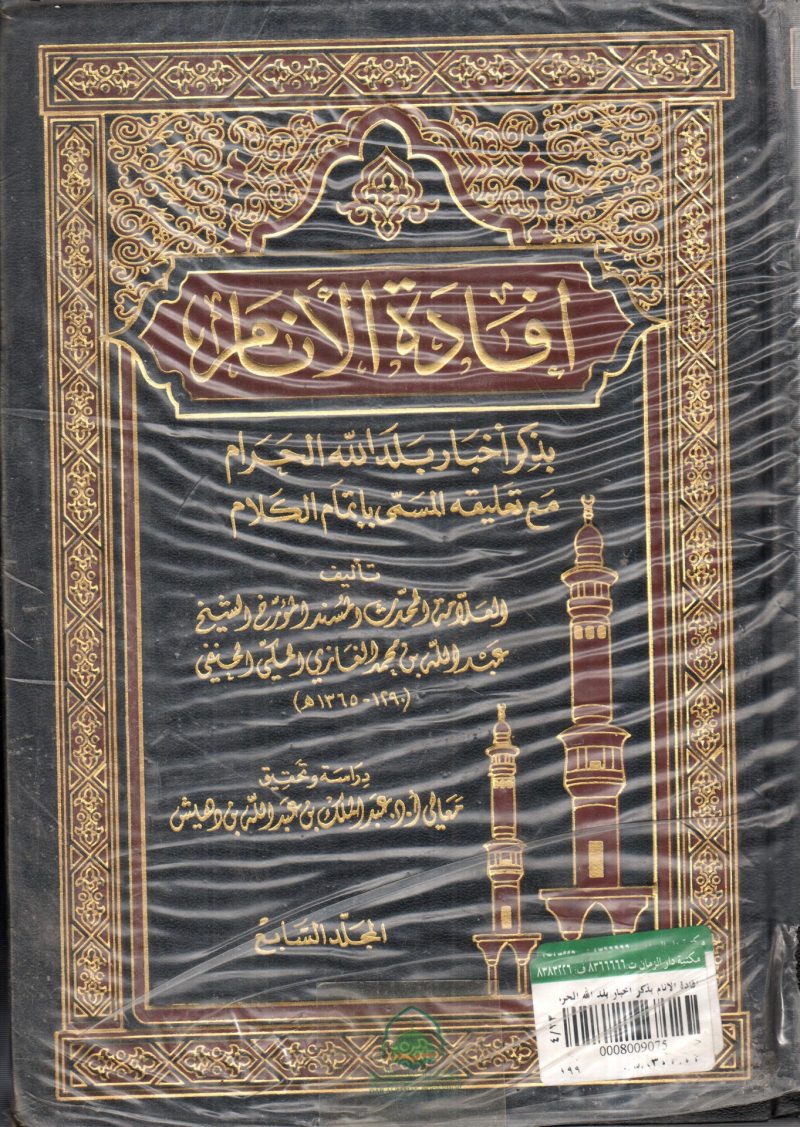 إفادة الأنام
بذكر أخبار بلد الله الحرام
مع تعليقه المسمى بإتمام الكلام
تأليف
العلامة المحدث المسند المؤرخ الشيخ
عبد الله بن محمد الغازي المكي الحنفي
(١٢٩٠-١٣٦٥هـ)
دراسة وتحقيق
معالي أ.د. عبد الملك بن عبد الله بن دهيش
المجلد السابع
مكتبة دار الزمان ت:٨٣٦٦٦٦٦ ف:٨٣٨٣٢٢٦
افادة الانام بذكر اخبار بلد الله الحر
٤/١٣
0008009075
١٩٩